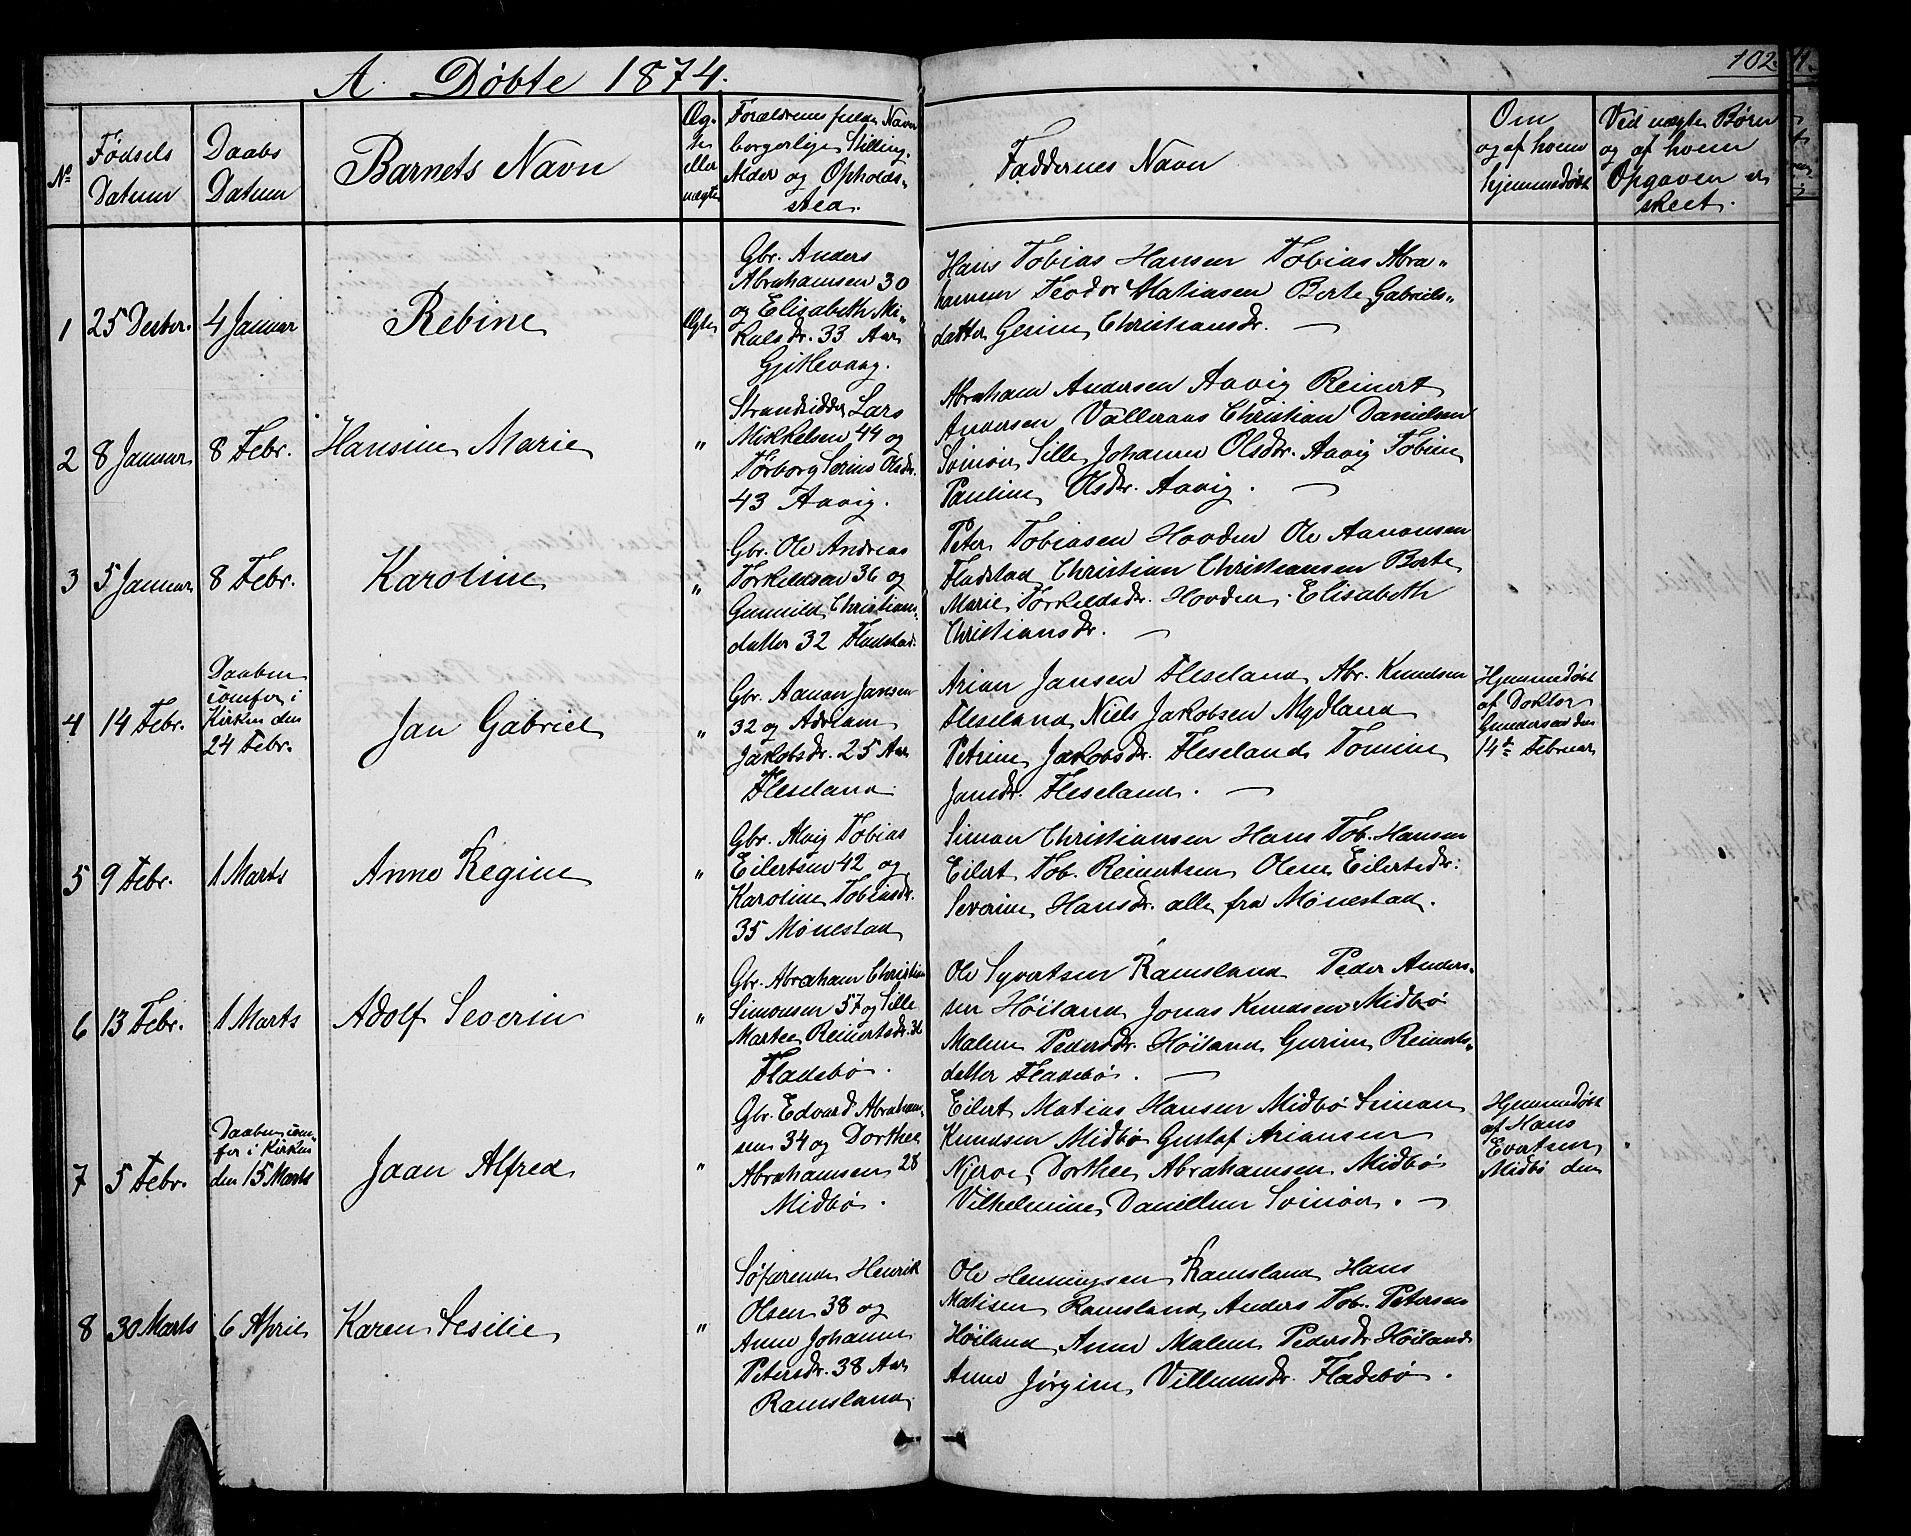 102.
A. Døbte 1874.
No
Fødsels
Datum
Daabs
Datum
Barnets Navn
Æg-
te
eller
uægte
Forældrenes fulde Navn
borgerlige Stilling,
Alder og Opholds-
sted.
Faddernes Navn
Om
og af hvem
hjemmedøbt
Ved uægte Børn
og af hvem
Opgaven er
skeet.
1
25 Decber.
4 Januar
Rebine
Ægte
Gbr. Anders
Abrahamsen 30
og Elisabeth Mi-
kalsdr. 33 Aar
Gjitlevaag.
Hans Tobias Hansen Tobias Abra-
hamsen Teodor Matiasen Berte Gabriels-
datter Gerine Christiansdr.
2
8 Januar
8 Febr.
Hansine Marie
"
Strandsidder Lars
Mikkelsen 44 og
Torborg Serine Olsdr.
43 Aavig.
Abraham Andersen Aavig Reinert
Andersen Valleraas Christian Danielsen
Svinør Sille Johanne Olsdr. Aavig Tobine
Pauline Olsdr. Aavig.
3
5 Januar
8 Febr.
Karoline
"
Gbr. Ole Andreas
Torkeldsen 36 og
Gunnild Christians-
datter 32 Fladstad.
Peter Tobiasen Hovden Ole Aanonsen
Fladstad Christian Christiansen Berte
Marie Torkeldsdr. Hovden Elisabeth
Christiansdr.
4
14 Febr.
Daaben
comfer. i
Kirken den
24 Febr.
Jan Gabriel
"
Gbr. Aanon Jansen
32 og Adriane
Jakobsdr. 25 Aar
Fleseland
Arian Jansen Fleseland Abr. Knudsen
Fleseland Niels Jakobsen Mydland
Petrine Jakobsdr. Fleseland Tomine
Jansdr. Fleseland.
Hjemmedøbt
af Doktor
Gundersen den
14de Februar
5
9 Febr.
1 Marts
Anne Regine
"
Gbr. Alvig Tobias
Eilertsen 42 og
Karoline Tobiasdr.
35 Mønestad
Simon Christiansen Hans Tob. Hansen
Eilert Tob. Reinertsen Olene Eilertsdr.
Severine Hansdr. alle fra Mønestad.
6
13 Febr.
1 Marts
Adolf Severin
"
Gbr. Abraham Christian
Simonsen 57 og Sille
Martee Reinertsdr. 36
Fladebø.
Ole Syvertsen Ramsland Peder Anders-
sen Høiland Jonas Knudsen Midbø
Malene Pedersdr. Høiland Gurine Reinerts-
datter Fladebø.
7
5 Febr.
Daaben com-
fer i Kirken
den 15 Marts
Jaan Alfred
"
Gbr. Edvard Abraham-
sen 34 og Dorthea
Abrahamsen 28
Midbø.
Eilert Matias Hansen Midbø Simon
Knudsen Midbø Gustaf Ariansen
Njerve Dorthea Abrahamsen Midbø
Vilhelmine Danielsen Svinør.
Hjemmedøbt
af Hans
Evertsen
Midbø den
8
30 Marts
6 April
Karen Sesilie
"
Søfarende Henrik
Olsen 38 og
Anne Johanne
Petersdr. 38 Aar
Ramsland
Ole Henningsen Ramsland Hans
Matisen Ramsland Anders Tob. Petersen
Høiland Anne Malene Pedersdr. Høiland
Anne Jørgine Villumsdr. Fladebø.